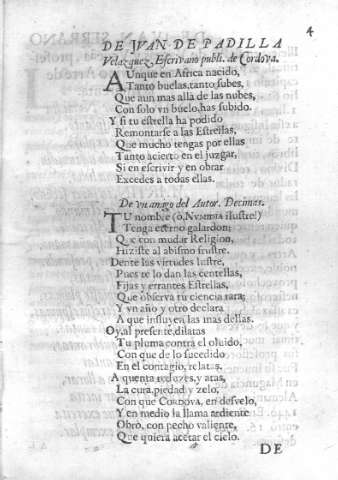 4
DE JVAN DE PADILLA
Velazquez, Escrivano publi. de Cordova.
AUnque en Africa nacido,
Tanto buelas, tanto subes,
Que aun mas alla de las nubes,
Con solo vn buelo, has subido.
Y si tu estrella ha podido
Remontarse a las Estrellas,
Que mucho tengas por ellas
Tanto acierto en el juzgar,
Si en escrivir y en obrar
Excedes a todas ellas.
De vn amigo del Autor. Decimas.
TU nombre (ò, NVMIDIA ilustre!)
Tenga eterno galardon;
Que con mudar Religion,
Hiziste al abismo frustre.
Dente las virtudes lustre,
Pues te lo dan las centellas,
Fijas y errantes Estrellas,
Que observa tu ciencia rara;
Y vn año y otro declara
A que influyen las mas dellas.
Oy, al presente, dilatas
Tu pluma contra el olvido,
Con que de lo sucedido
En el contagio, relatas.
A quenta reduzes, y atas,
La cura, piedad y zelo,
Con que CORDOVA, en desvelo,
Y en medio la llama ardiente
Obrò, con pecho valiente,
Que quiera acetar el cielo.
DE